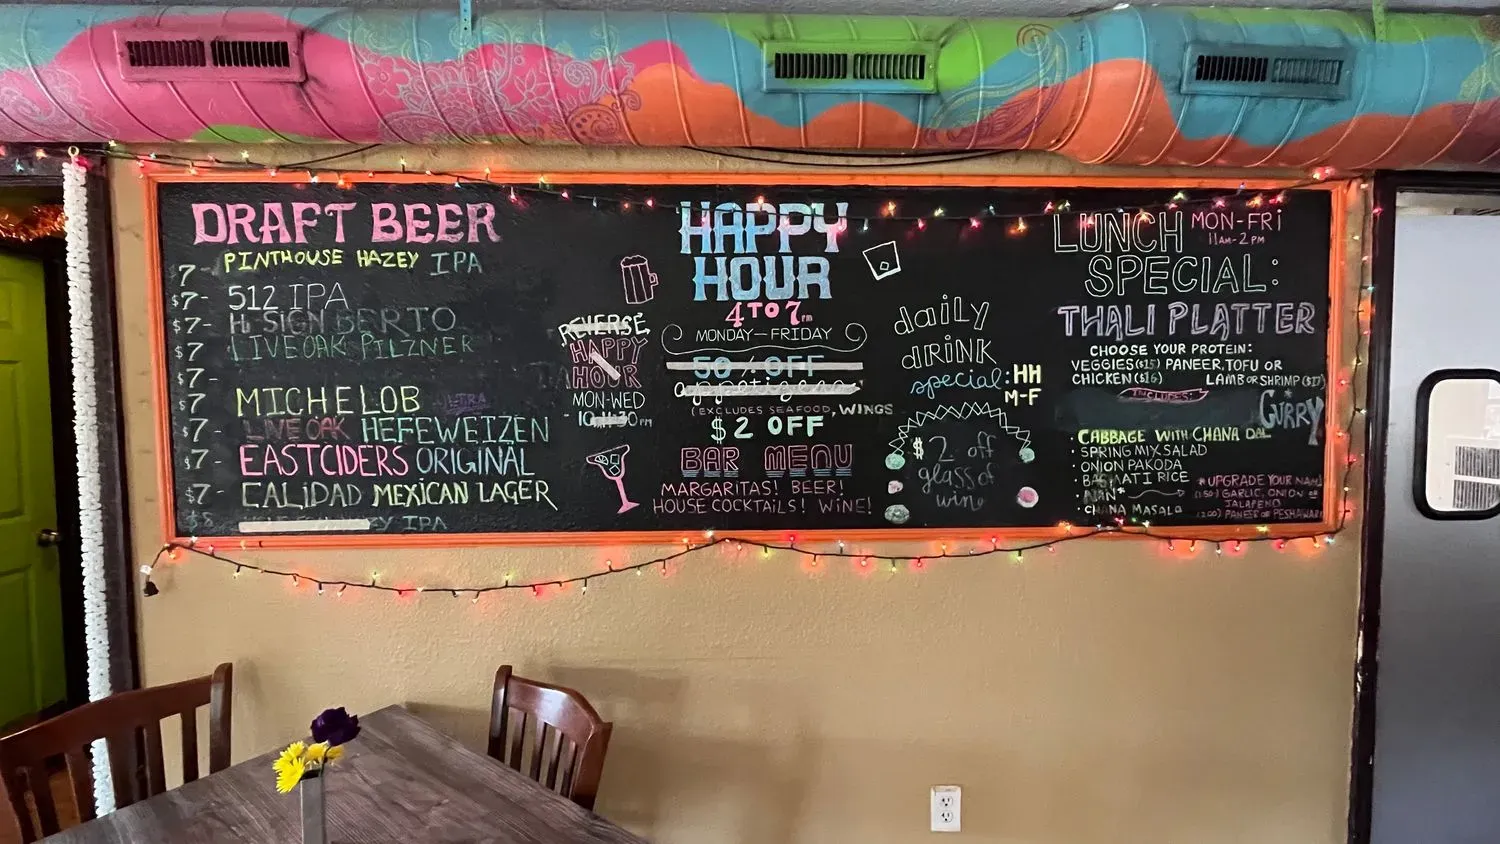 DRAFT BEER
7- PINTHOUSE HAZEY IPA
$7- 512 IPA
$7- Hi SIGN BERTO
$7 LIVE OAK PILZNER
$7-
$7 MICHELOB ULTRA
$7- LIVE OAK HEFEWEIZEN
$7- EASTCIDERS ORIGINAL
$7- CALIDAD MEXICAN LAGER
$8 IPA
REVERSE
HAPPY
HOUR
MON-WED
HAPPY
HOUR
4 TO 7PM
MONDAY-FRIDAY
50% OFF
appetizers
(EXCLUDES SEAFOOD, WINGS
$2 OFF
BAR MENU
MARGARITAS! BEER!
HOUSE COCKTAILS! WINE!
daily
dRiNK
special: HH
M-F
$2 off
glass of
wine
LUNCH MON-FRi
11AM-2PM
SPECIAL:
THALI PLATTER
CHOOSE YOUR PROTEIN:
VEGGIES($15) PANEER,TOFU OR
CHICKEN($16) LAMB OR SHRIMP ($17)
INCLUDES:
CURRY
· CABBAGE WITH CHANA DAL
· SPRING MIX SALAD
· ONION PAKODA
· BASMATI RICE
· NAN*
· CHANA MASALA
*UPGRADE YOUR NAN!
(1.50) GARLIC, ONION OR
JALAPENO
(2.00) PANEER OR PESHAWARI